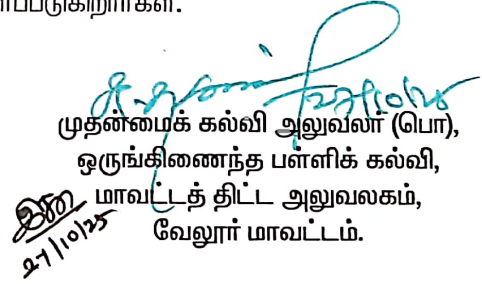 முதன்மைக் கல்வி அலுவலர் (பொ),
ஒருங்கிணைந்த பள்ளிக் கல்வி,
மாவட்டத் திட்ட அலுவலகம்,
வேலூர் மாவட்டம்.
27/10/25